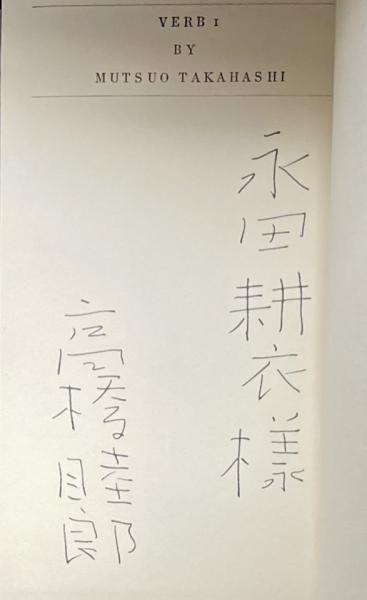 VERB I
BY
MUTSUO TAKAHASHI
永田耕衣様
高橋睦郎